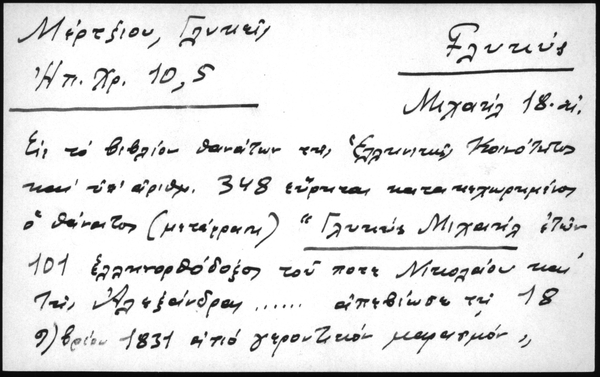 Μέρτζιου, Γλυκεῖς
Ἠπ. Χρ. 10, 5
Γλυκύς
Μιχαήλ 18. αἰ.
Εἰς τό βιβλίον θανάτων τῆς Ἑλληνικῆς Κοινότητος
καί ὑπ' ἀριθμ. 348 εὕρηται καταχεχωρημένος
ὁ θάνατος (μετάφρασις) "Γλυκύς Μιχαήλ ἐτῶν
101 ἑλληνορθόδοξος τοῦ ποτε Νικολαίου καί
τῆς Ἀλεξάνδρας ...... ἀπεβίωσε τῇ 18
9)βρίου 1831 ἀπό γεροντικόν μαρασμόν „